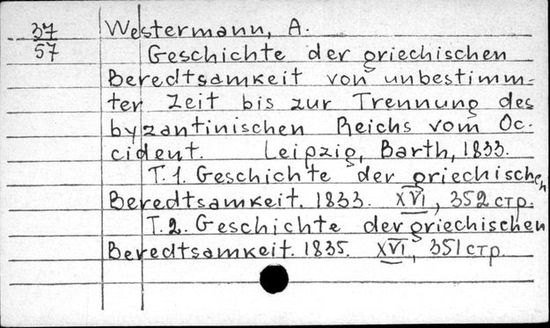 37 Westermann, A.
57 Geschichte der griechischen
Beredtsamkeit von unbestimm-
ter Zeit bis zur Trennung des
byzantinischen Reichs vom Oc-
cident. Leipzig, Barth, 1833.
T. 1. Geschichte der griechischen
Beredtsamkeit. 1833. XVI, 352 стр.
T. 2. Geschichte der griechischen
Beredtsamkeit. 1835. XVI, 351 стр.